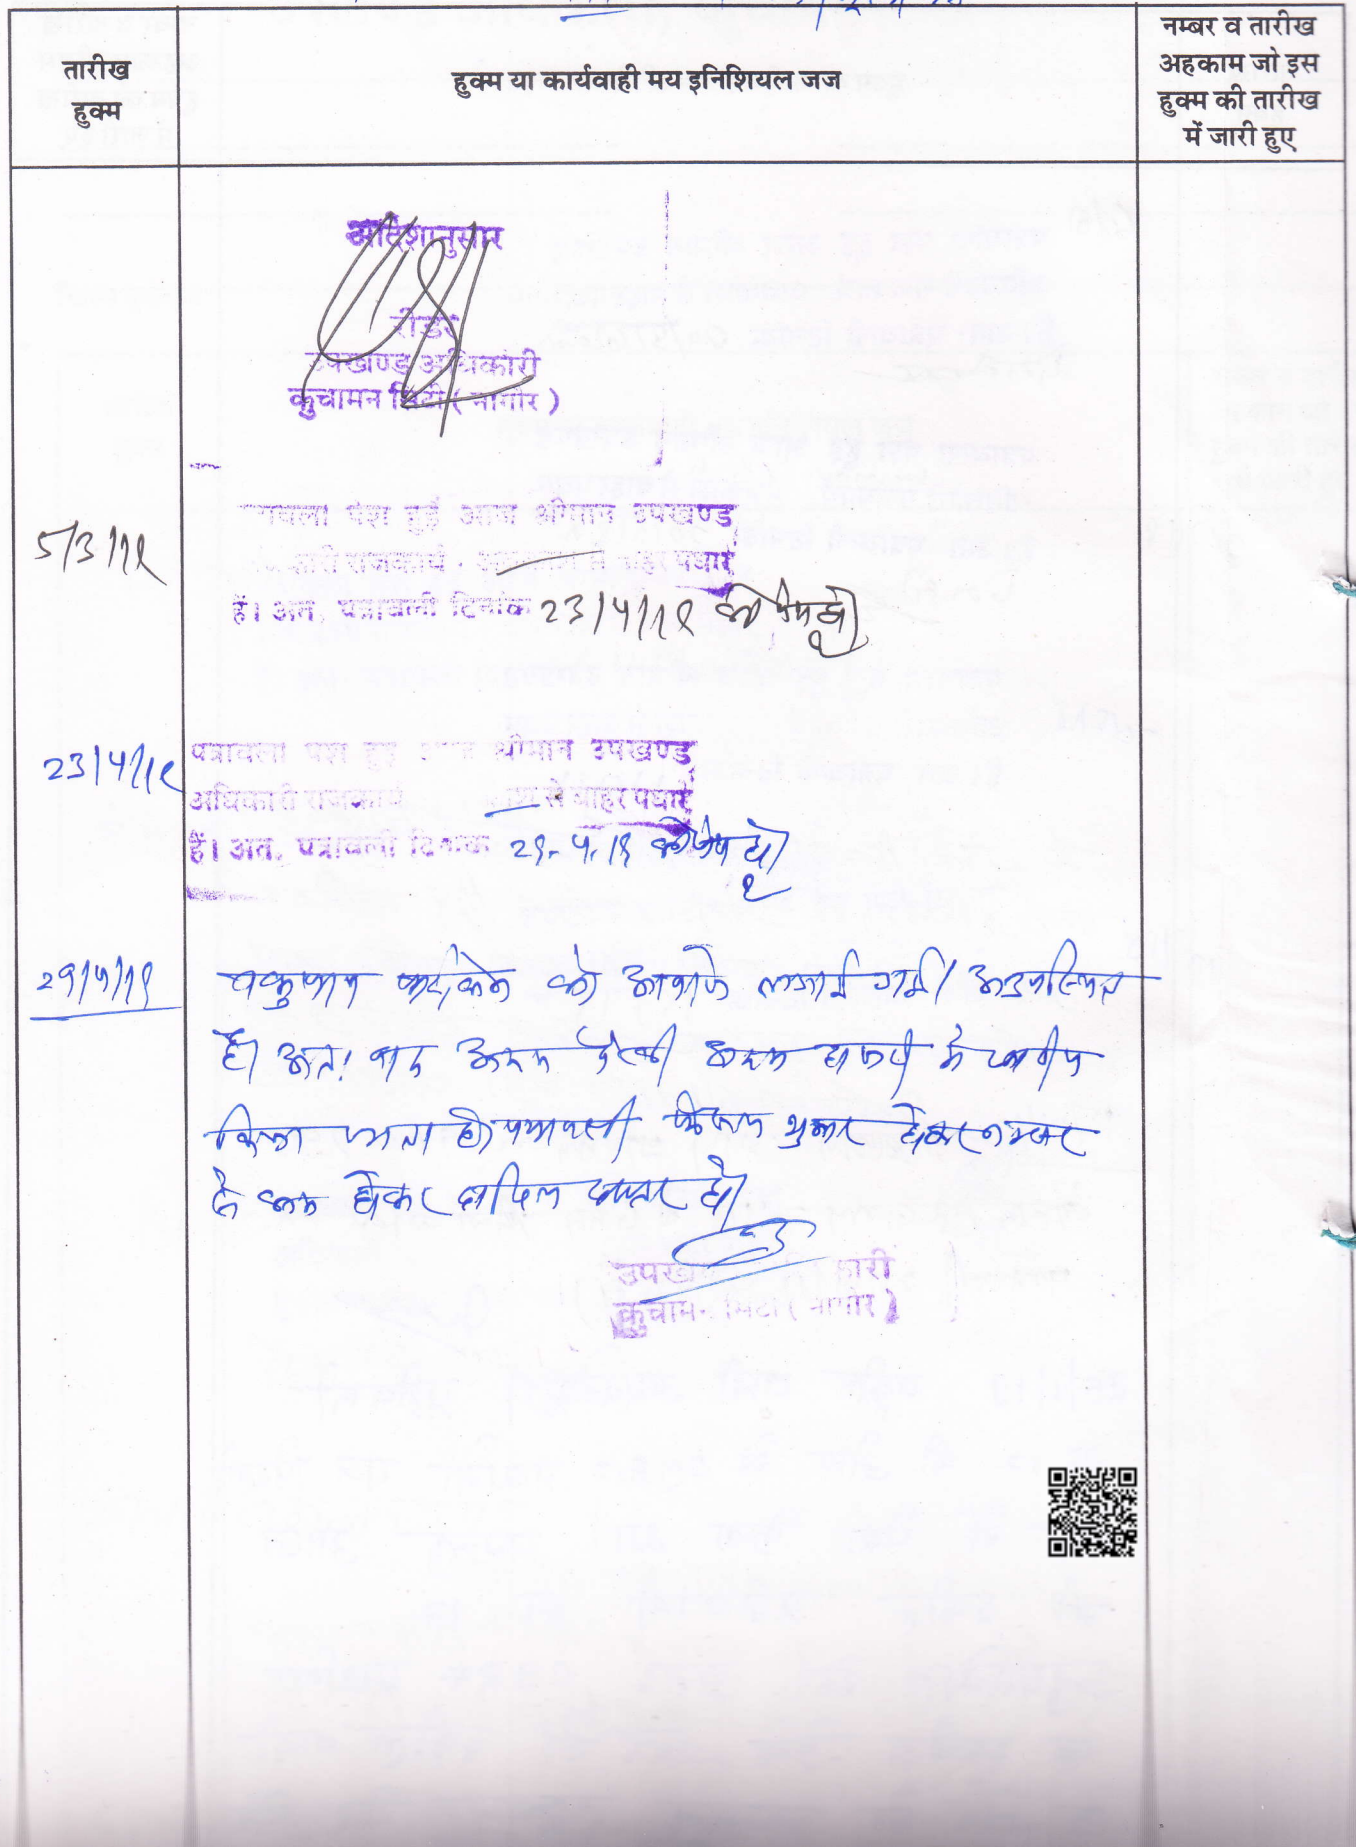 तारीख
हुक्म
हुक्म या कार्यवाही मय इनिशियल जज
नम्बर व तारीख
अहकाम जो इस
हुक्म की तारीख
में जारी हुए
आदेशानुसार
रीडर
उपखण्ड अधिकारी
कुचामन सिटी ( नागौर )
5/3/18
पेश हुई आज श्रीमान उपखण्ड
राजकार्य से बाहर पधारे
हैं। अत. पत्रावली दिनांक 23/4/18 को पेश हो
23/4/18
पत्रावली पेश हुई आज श्रीमान उपखण्ड
अधिकारी राजकार्य से बाहर पधारे
हैं। अत. पत्रावली दिनांक को पेश हो
को आवाजे लगाई गई। अनुपस्थित
है। अतः वाद अदम पैरवी अदम हाजरी मे खारीज
किया जाता है। पत्रावली फैसल शुमार होकर नम्बर
से कम होकर दाखिल दफ्तर हो।
उपखण्ड अधिकारी
कुचामन सिटी ( नागौर )